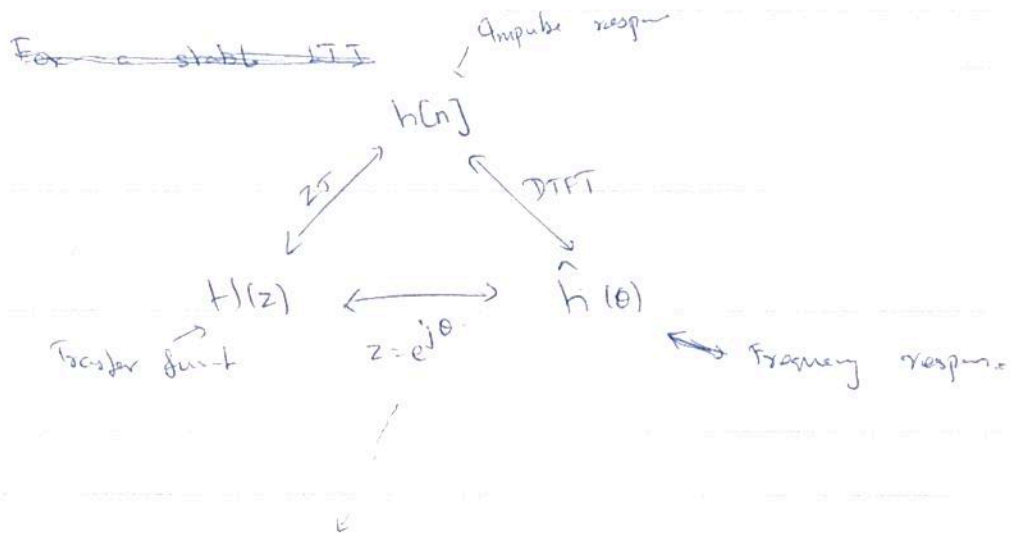 For a stable LTI
Impulse respn
h[n]
ZT
DTFT
H(z)
ĥ(θ)
z = e^{jθ}
Transfer funt
Frequency respons.